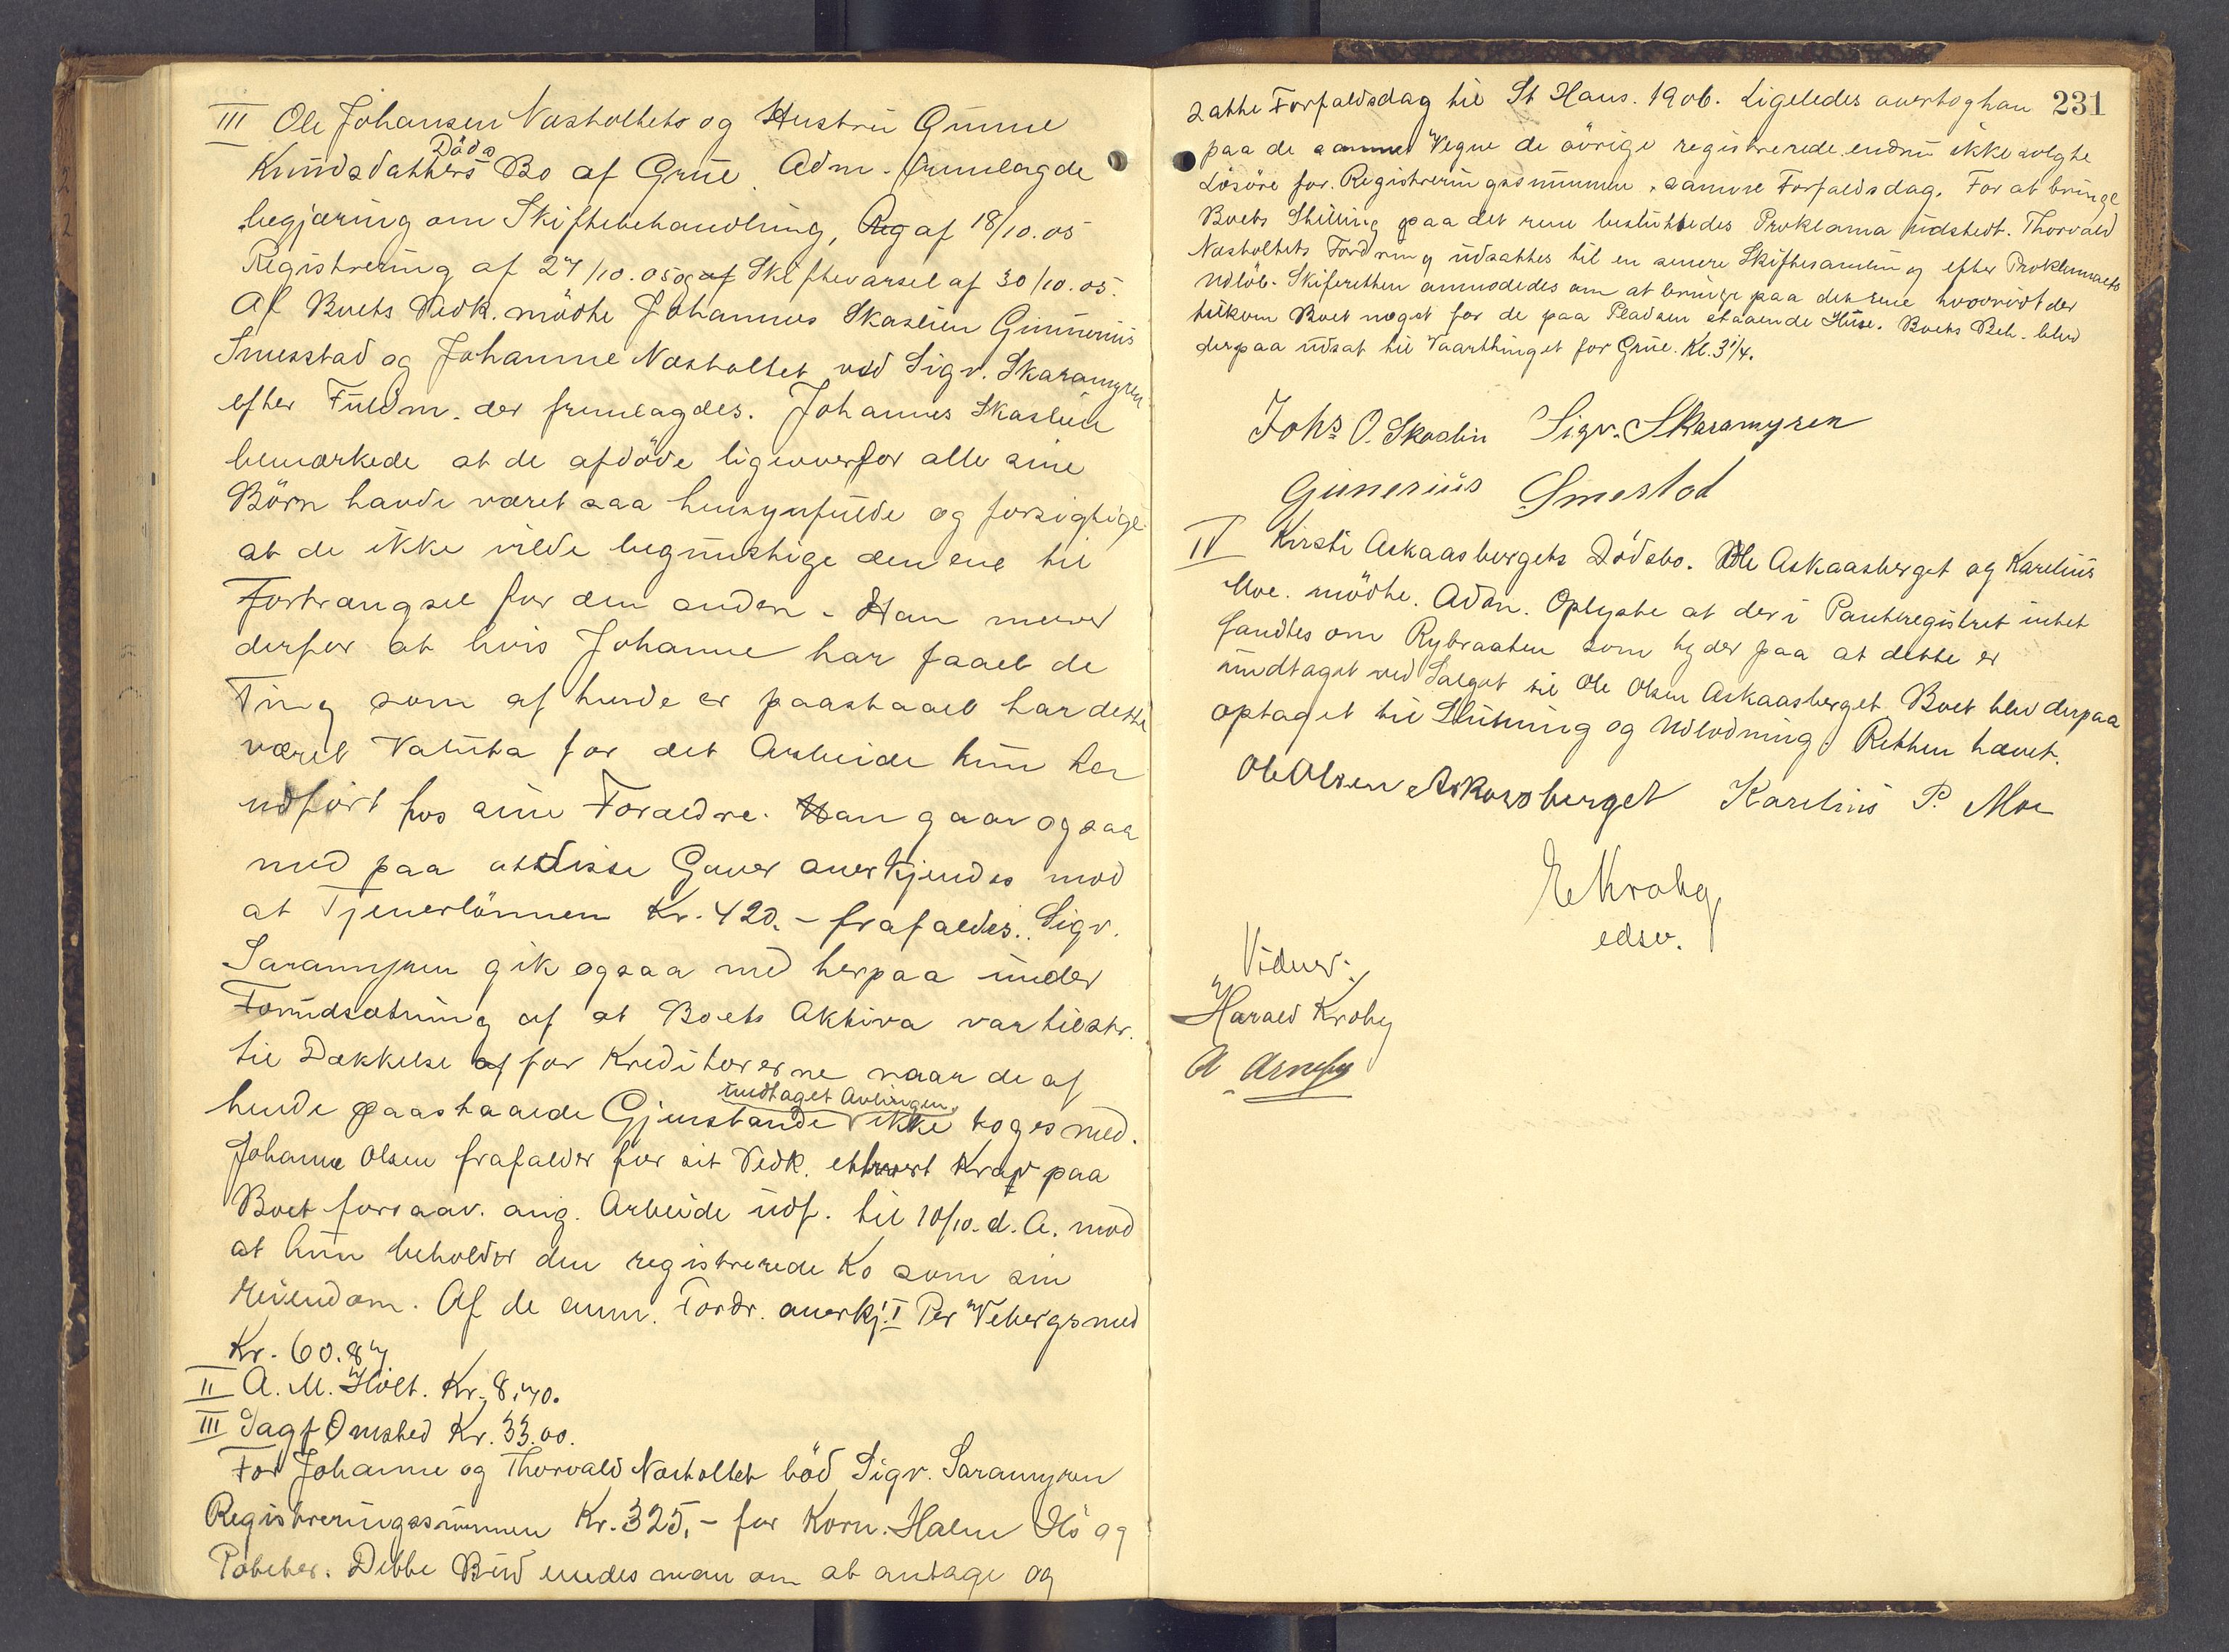 III Ole Johansen Næsholtets og Hustru Gunne
Knudsdatters Döds Bo af Grue. Adm. fremlagde
begjæring om Skiftebehandling, Reg af 18/10.05
Registrering af 27/10.05 og af Skiftevarsel af 30/10.05.
Af Boets Vedk. mödte Johannes Skaslien Gunnerius
Smesstad og Johanne Næsholtet ved Sigv. Skaramyren
efter Fuldm. der fremlagdes. Johannes Skaslien
bemærkede at de afdöde ligeoverfor alle sine
Börn havde været saa hensynfulde og forsigtige
at de ikke vilde begunstige den ene til
Fortrængsel for den anden. Han mener
derfor at hvis Johanne har faaet de
Ting som af hende er paastaaet har dette
været Valuta for det Arbeide hun har
udfört hos sine Forældre. Han gaar ogsaa
med paa at disse Gaver anerkjendes mod
at Tjenerlönnen Kr. 420.- frafaldes. Sigv.
Saramyren gik ogsaa med herpaa under
Forudsætning af at Boets Aktiva var tilstr.
til Dækkelse af for Kreditorerne naar de af
hende paastaaede Gjenstande undtaget Avlingen ikke toges med.
Johanne Olsen frafalder for sit Vedk. ethvert Krav paa
Boet forsaav. ang. Arbeide udf. til 10/10. d. A. mod
at hun beholder den registrerede Ko som sin
Eiendom. Af de anm. Fordr. anerkj. I Per Vebergs med
Kr. 60.87
II A. M. Holt. Kr. 8.70.
III Sagf Omsted Kr. 33.00.
For Johanne og Thorvald Næsholtet böd Sigv. Saramyren
Registreringssummen Kr. 325.- for Korn. Halm Hö og
Poteter. Dette Bud enedes man om at antage og
231
satte Forfaldsdag til St Hans. 1906. Ligeledes overtog han
paa de sammes Vegne de övrige registrerede endnu ikke solgte
Lösöre for Registreringssummen, samme Forfaldsdag. For at bringe
Boets Stilling paa det rene besluttedes Proklama udstedt. Thorvald
Næsholtets Fordring udsattes til en senere Skiftesamling efter Proklamaets
Udlöb. Skifteretten anmodedes om at bringe paa det rene hvorvidt der
tilkom Boet noget for de paa Pladsen staaende Huse. Boets Beh. blev
derpaa udsat til Vaarthinget for Grue. Kl. 3 1/4.
Johs O. Skaslin Sigv. Skaramyren
Gunerius Smestad
IV Kirsti Askaasbergets Dödsbo. Ole Askaasberget og Karelius
Moe. mödte. Adm. Oplyste at der i Panteregistret intet
fandtes om Rydraaten som tyder paa at dette er
undtaget ved Salget til Ole Olsen Askaasberget. Boet blev derpaa
optaget til Slutning og Udlodning. Retten hævet.
Ole Olsen Askaasberget Karelius P. Moe
E Krohg
edsv.
Vidner:
Harald Krohg
A Arneby